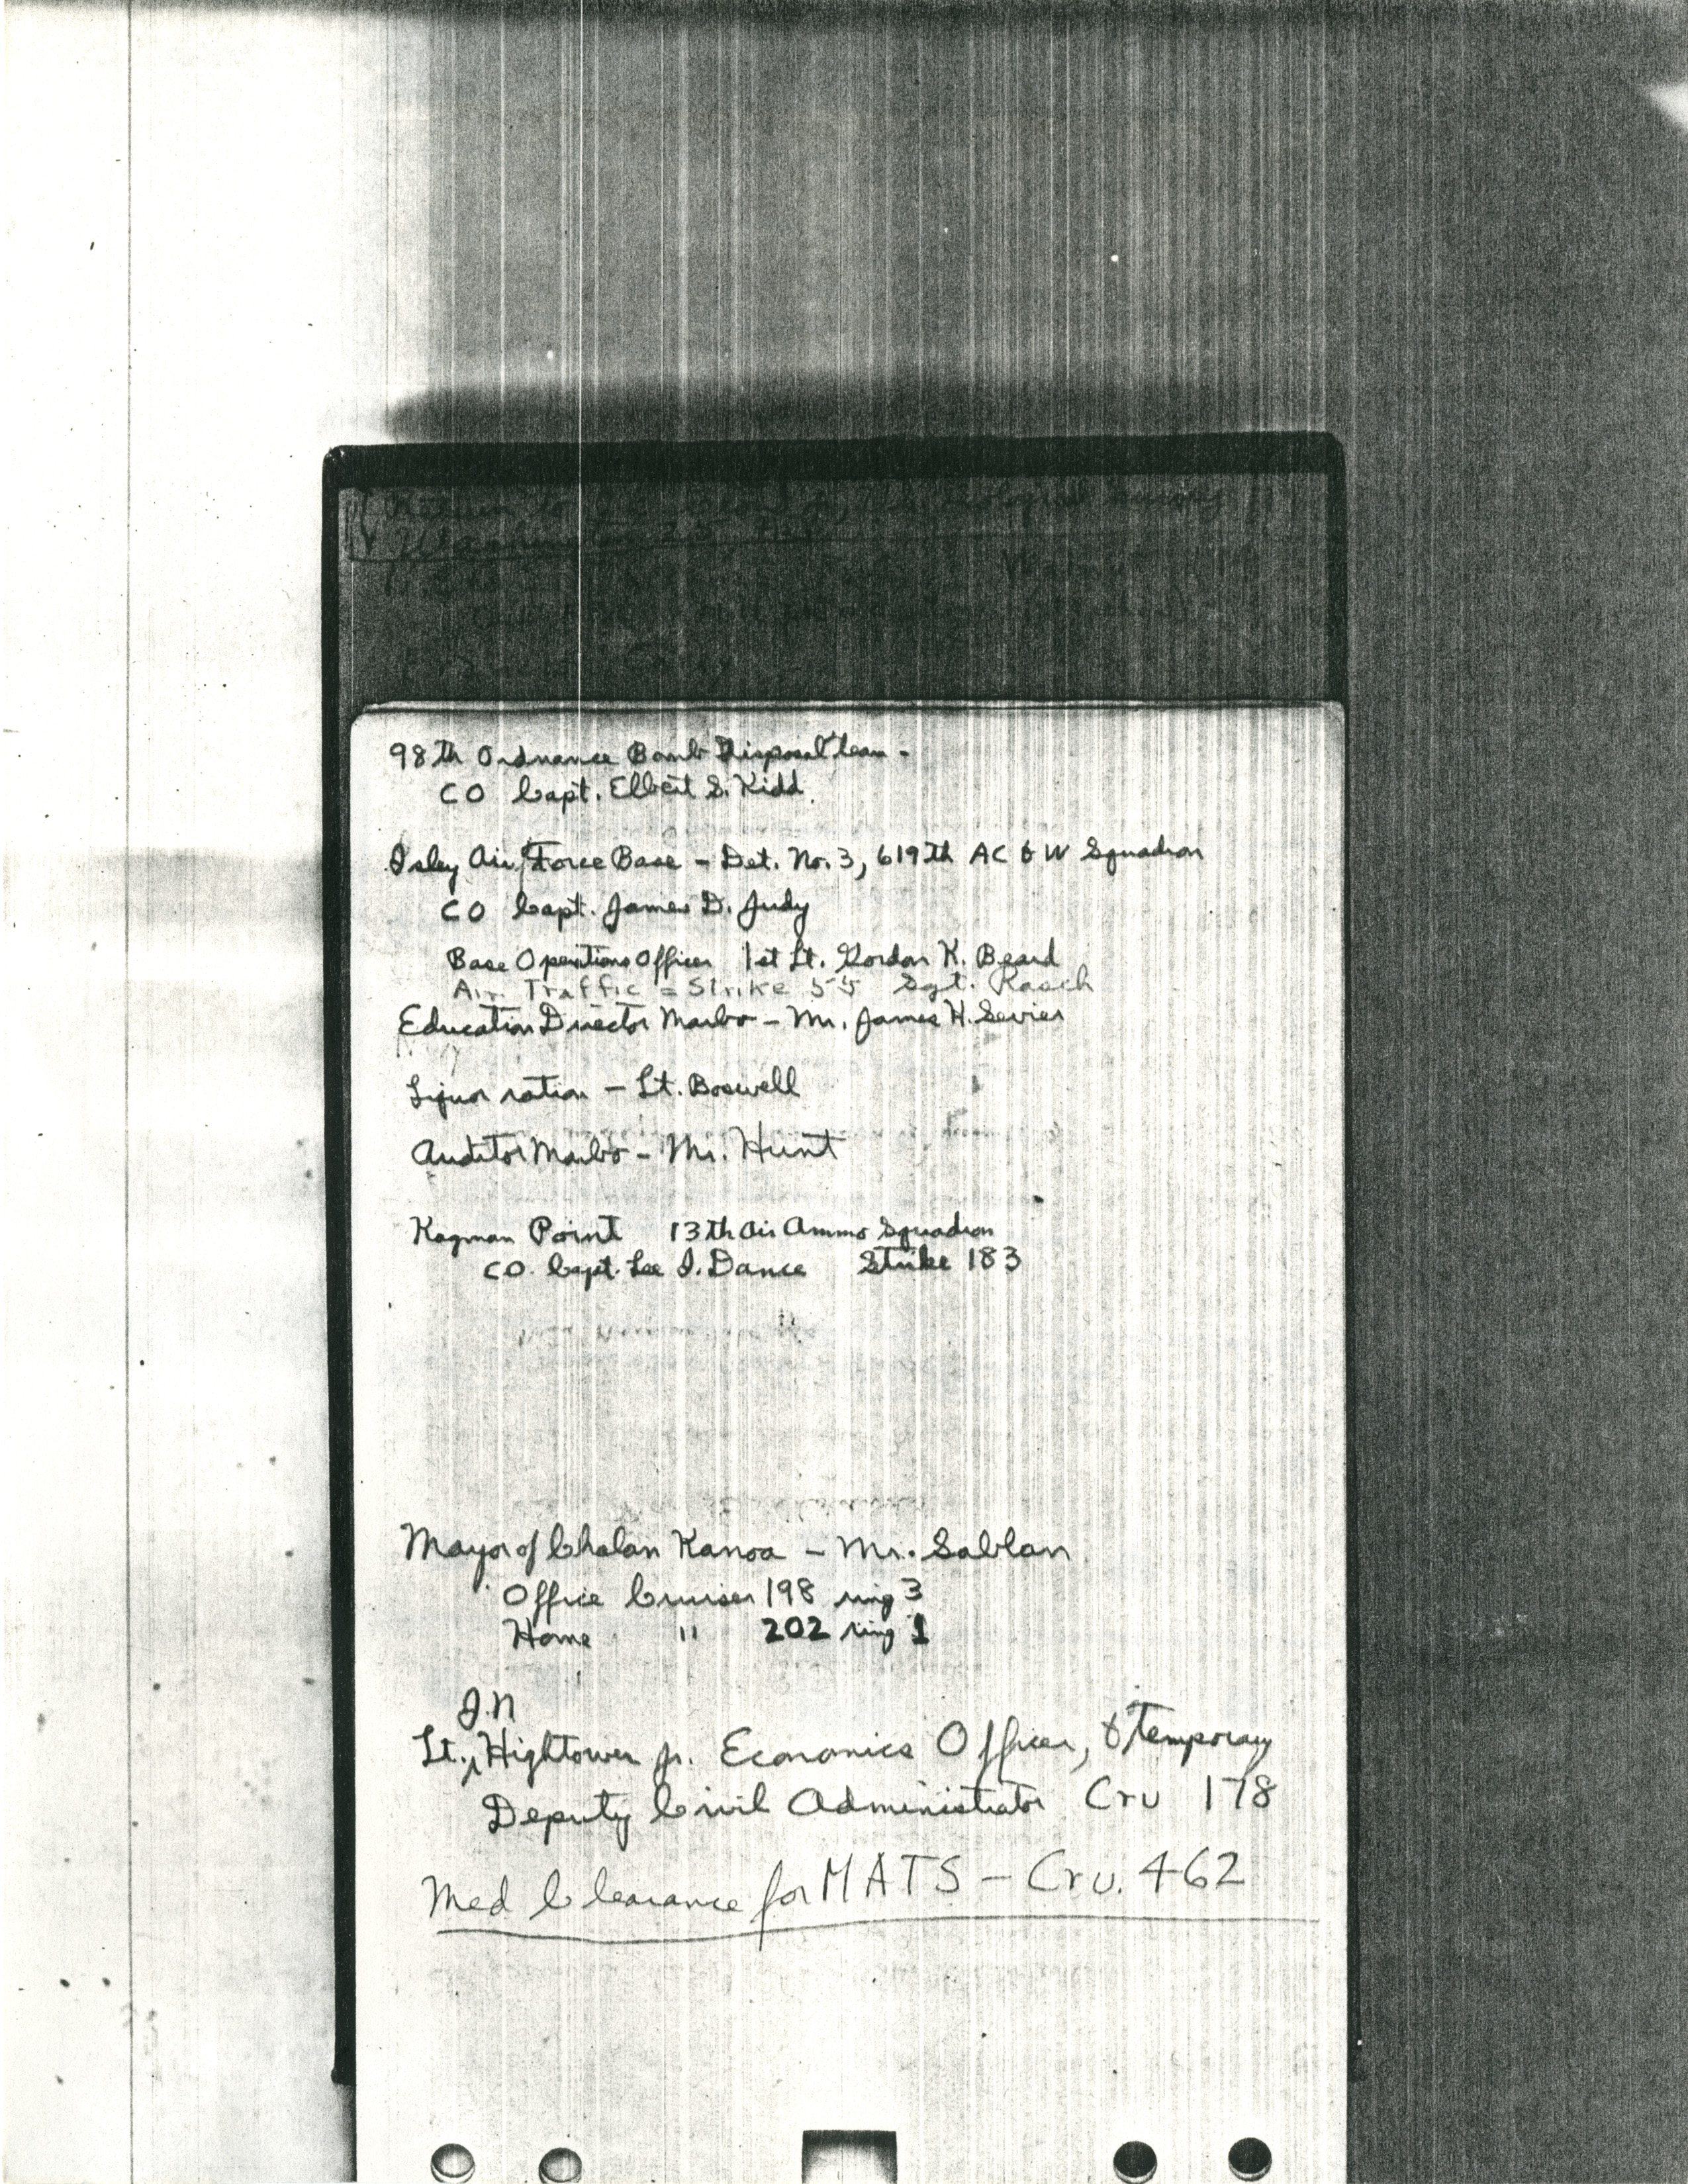 Return to
Washington 25,
98th Ordnance Bomb Disposal team -
CO Capt. Elbert S. Kidd
Isley Air Force Base - Det. No. 3, 619th AC & W Squadron
CO Capt. James D. Judy
Base Operations Officer 1st Lt. Gordon K. Beard
Air Traffic = Strike 55 Sgt. Rasch
Education Director Marbo - Mr. James H. Sevier
Liquor ration - Lt. Boswell
Auditor Marbo - Mr. Hunt
Kagman Point 13th Air Ammo Squadron
CO. Capt. Lee I. Dance Strike 183
Mayor of Chalan Kanoa - Mr. Sablan
Office Cruiser 198 ring 3
Home " 202 ring 1
J.N
Lt., Hightower Jr. Economics Officer, & temporary
Deputy Civil Administrator Cru 178
Med Clearance for MATS - Cru. 462